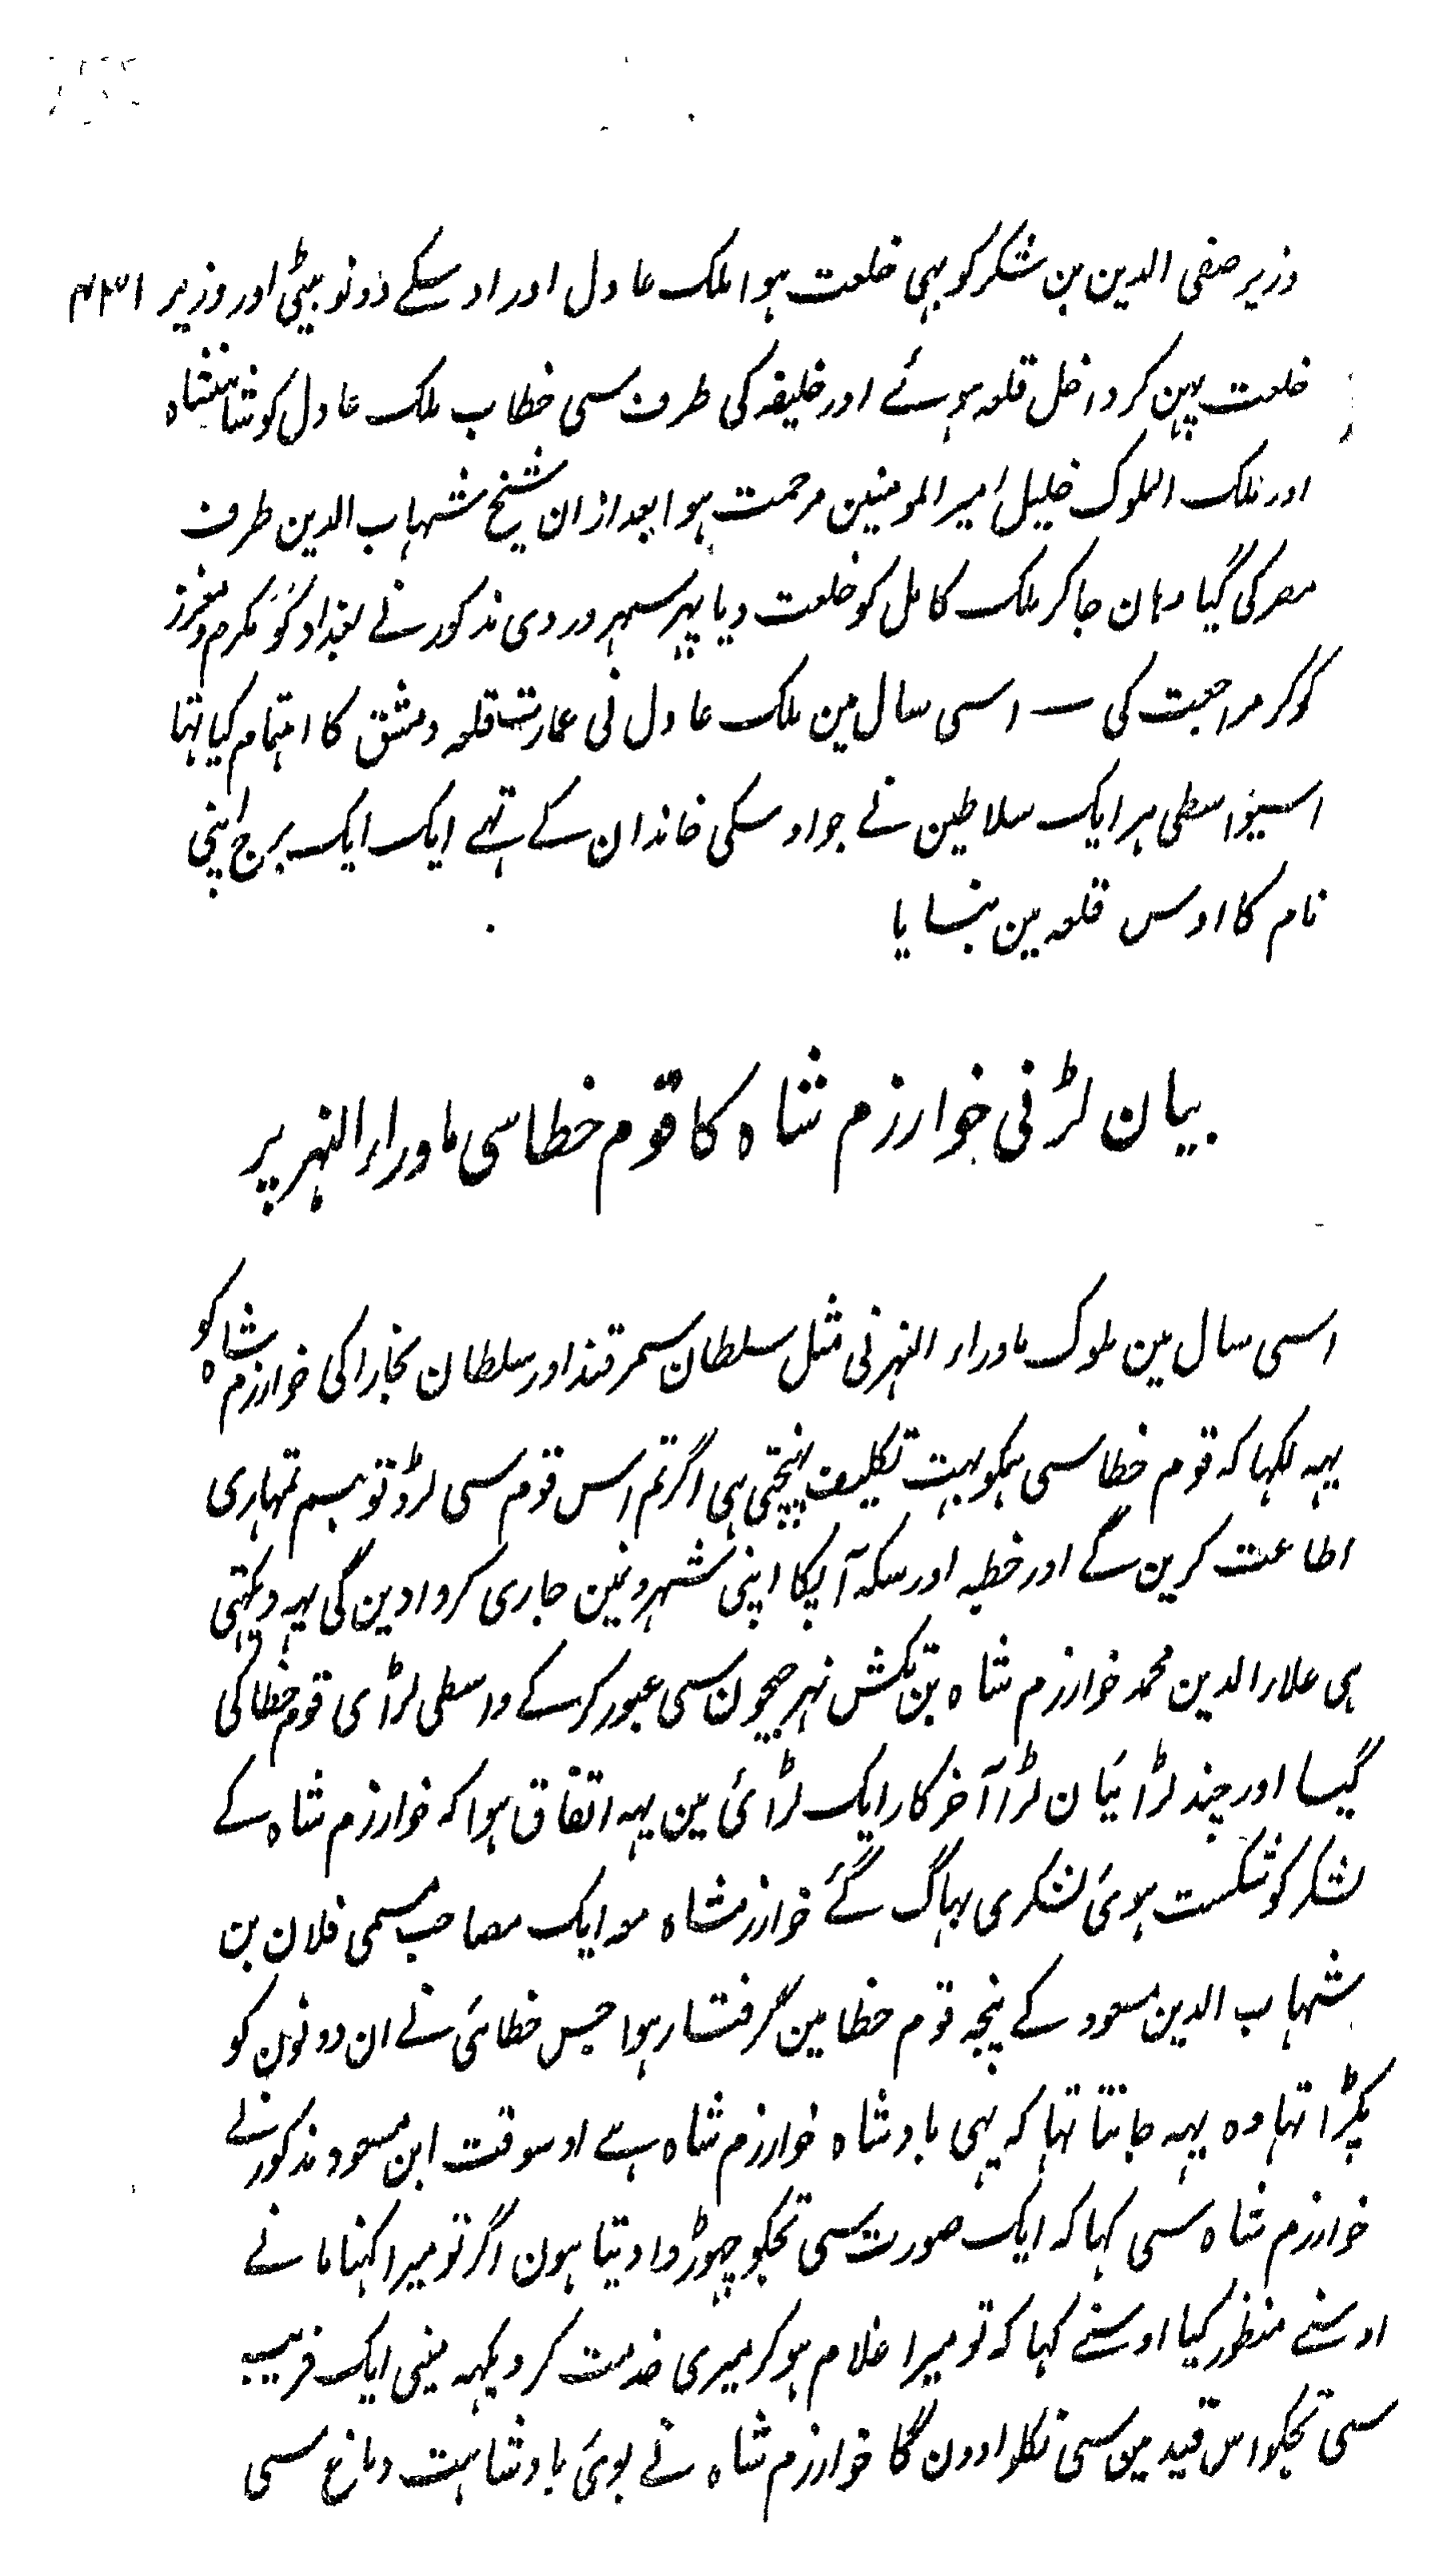 وزیر صفی الدین بن شکر کو بہی خلعت ہوا ملک عادل اور اوسکے دونو بیٹی اور وزیر ۴۳۱
خلعت پہن کر داخل قلعہ ہوئے اور خلیفہ کی طرف سی خطاب ملک عادل کو شاہنشاہ
اور ملک الملوک خلیل امیر المومنین مرحمت ہوا بعد ازان شیخ شہاب الدین طرف
مصر کی گیا وہان جا کر ملک کامل کو خلعت دیا پہر سہروردی مذکور نے بغداد کو مکرم و معزز
ہوکر مراجعت کی ـــ اسی سال مین ملک عادل نی عمارت قلعہ دمشق کا اہتمام کیا تہا
اسیواسطی ہر ایک سلاطین نے جو اوسکی خاندان کے تہے ایک ایک برج اپنی
نام کا اوس قلعہ مین بنایا
بیان لڑنی خوارزم شاہ کا قوم خطا سی ماوراء النہر پر
اسی سال مین ملوک ماوراء النہر نی مثل سلطان سمرقند اور سلطان بخارا کی خوارزم شاہ کو
یہہ لکہا کہ قوم خطا سی ہمکو بہت تکلیف پہنچتی ہی اگر تم اس قوم سی لڑو تو ہم تمہاری
اطاعت کرین گے اور خطبہ اور سکہ آپکا اپنی شہرونمین جاری کروادین گی یہہ دیکہتی
ہی علاء الدین محمد خوارزم شاہ بن تکش نہر جیحون سی عبور کر کے واسطی لڑائی قوم خطا کی
گیا اور چند لڑائیان لڑا آخر کار ایک لڑائی مین یہہ اتفاق ہوا کہ خوارزم شاہ کے
لشکر کو شکست ہوئی لشکری بہاگ گئے خوارزمشاہ معہ ایک مصاحب مسمی فلان بن
شہاب الدین مسعود کے پنجہ قوم خطا مین گرفتار ہوا جس خطائی نے ان دونون کو
پکڑا تہا وہ یہہ جانتا تہا کہ یہی بادشاہ خوارزم شاہ ہے اوسوقت ابن مسعود مذکور نے
خوارزم شاہ سی کہا کہ ایک صورت سی تجکو چہوڑوا دیتا ہون اگر تو میرا کہنا مانے
اوسنے منظور کیا اوسنے کہا کہ تو میرا غلام ہو کر میری خدمت کر دیکہہ مینی ایک فریب
سی تجکو اس قید مین سی نکلوا دون گا خوارزم شاہ نے بوئی بادشاہت دماغ سی